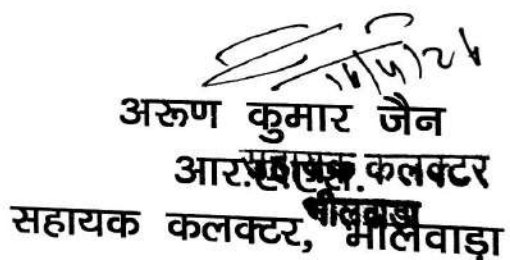 अरूण कुमार जैन
आर.ए.एस.
सहायक कलक्टर
भीलवाड़ा
सहायक कलक्टर, भीलवाड़ा